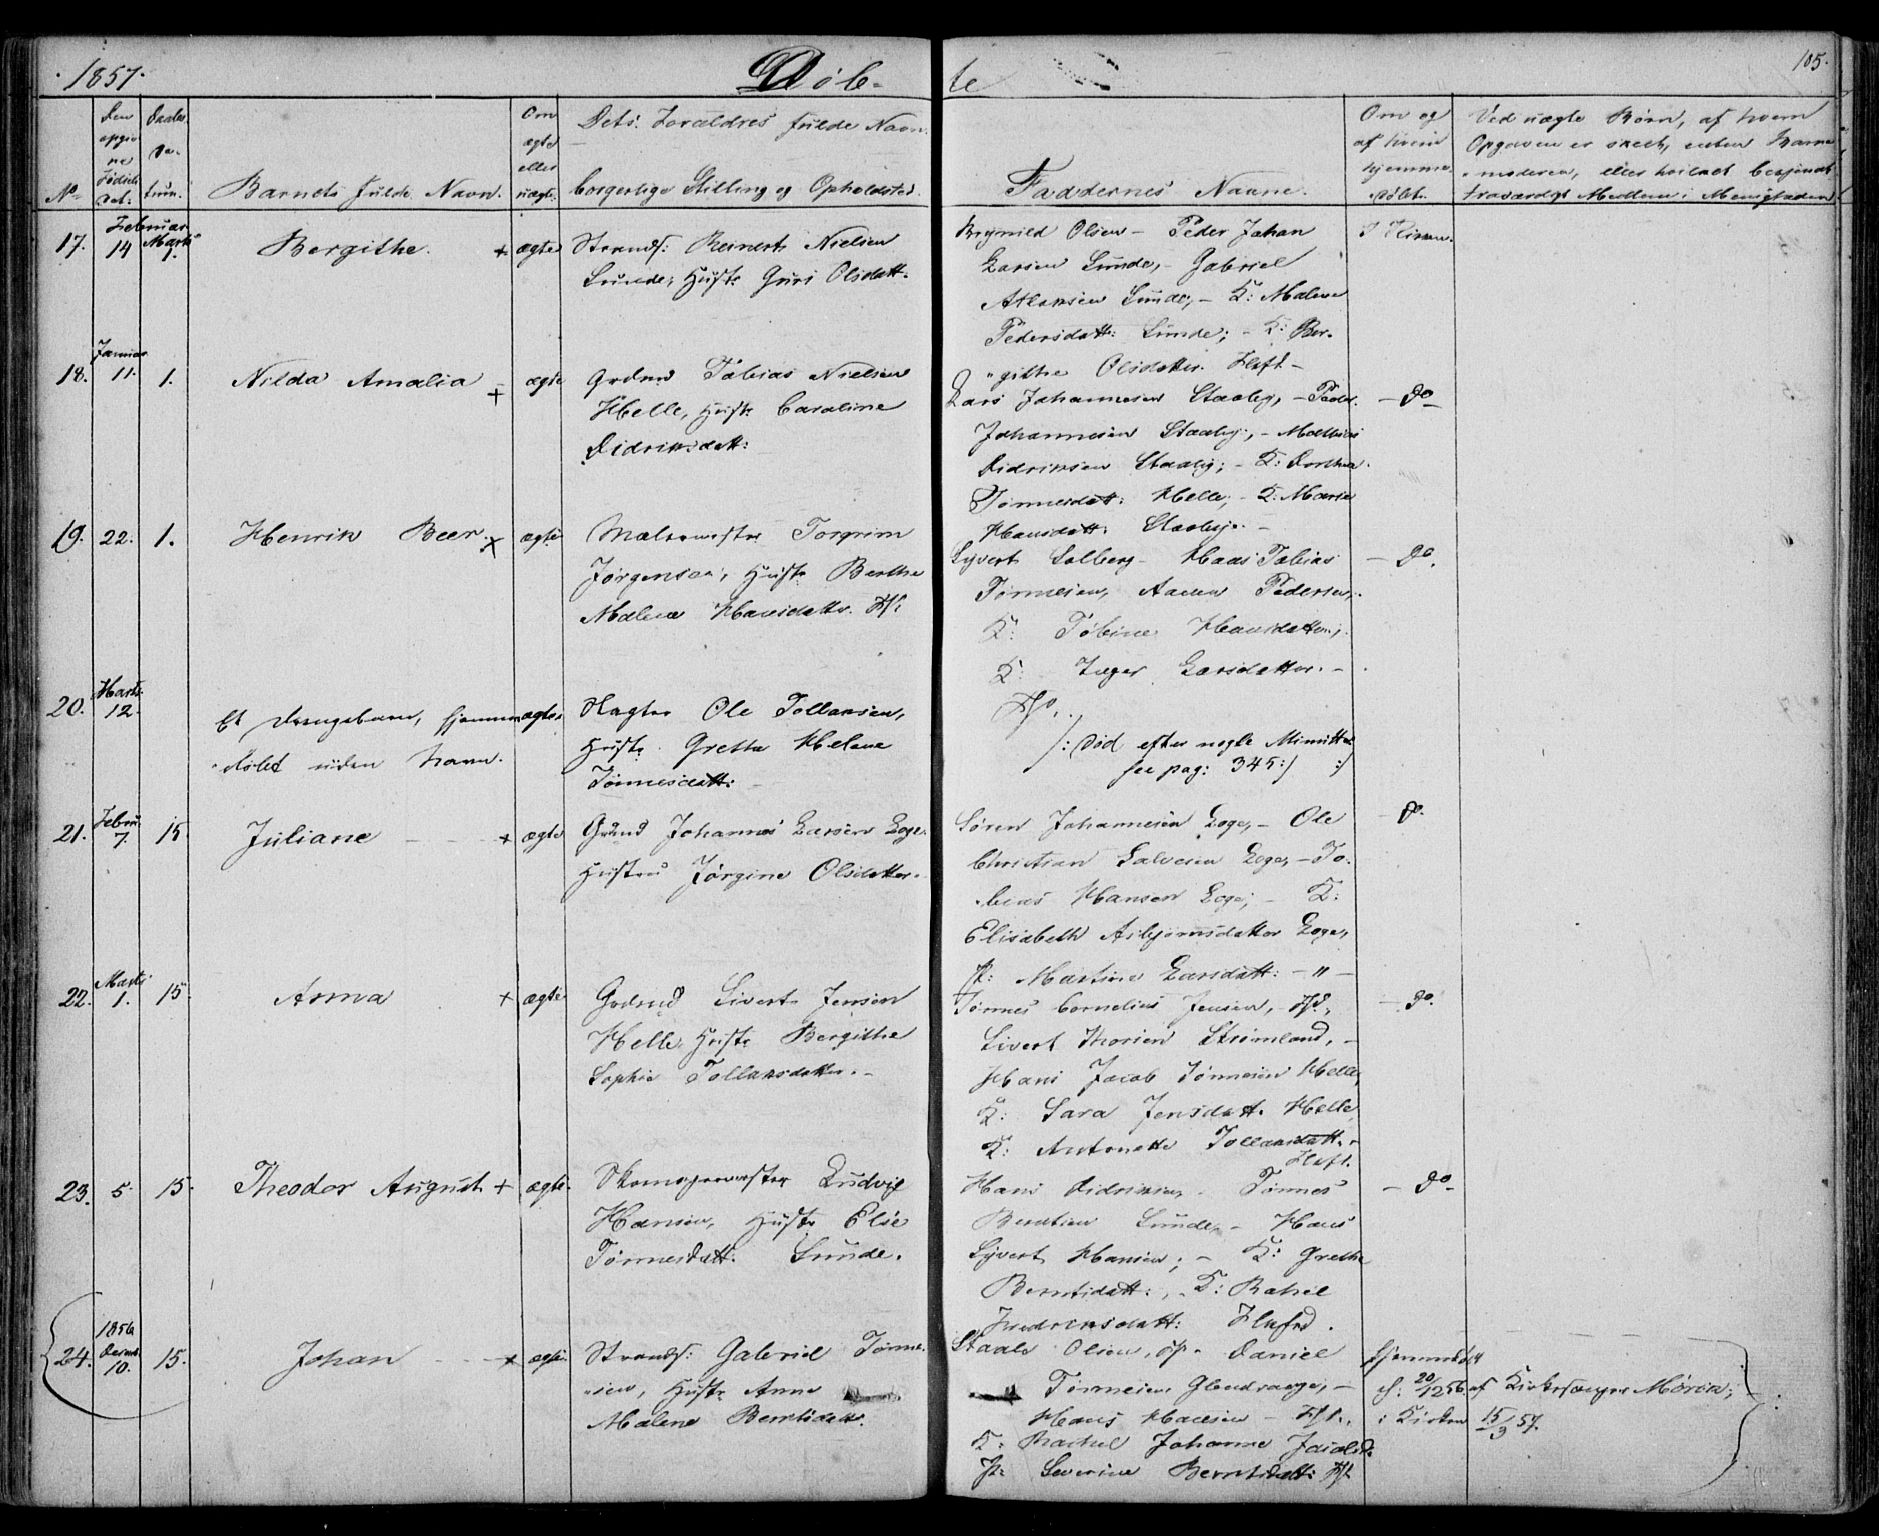 1857.
Døb-
te
105.
No
Den opgivne Fødselsdat:
Daabsdatum.
Barnets fulde Navn.
Om ægte eller uægte.
Dets Forældres fulde Navn
borgerlige Stilling og Opholdsted.
Faddernes Navne.
Om og af hvem hjemmedøbt.
Ved uægte Børn, af hvem
Opgaven er skeet, enten Barne-
moderen, eller hvilket
troværdigt Medlem i Menigheden
17. Februar 14 Marts 1. Bergithe. + ægte
Strands: Reinert Nielsen
Sunde, Hustr Guri Olsdatt:
Brynild Olsen - Peder Johan
Larsen Sunde, - Gabriel
Atlaksen Sunde, - K: Malene
Pedersdatt: Sunde; - K: Ber-
githe Olsdatter. Flekf -
I Kirken.
18. Januar 11. 1. Nilda Amalia + ægte
Grdmd Tobias Nielsen
Helle, Hustr Caroline
Didriksdatt:
Lars Johannesen Staaley, - Peder
Johannesen Staaley, - Mathias
Didriksen Staaley; - K: Dorthea
Tønnesdatt: Helle, - K: Marie
Hansdatt: Staaley. -
- Do -
19. 22. 1. Henrik Beer. x ægte
Malermester Torgrim
Jørgensen, Hustr Berthe
Malene Hansdatter. Ff:
Syvert Solberg - Hans Tobias
Tønnesen, Aanen Pedersen,
K: Tobine Hansdatter,
K: Inger Larsdatter. -
- Do.
20. Marts 12. Et Drengebarn, hjemme- ægte
døbt uden Navn.
Slagter Ole Tollaksen,
Hustr. Grethe Helene
Tønnesdatt: -
/: Død efter nogle Minutter
see pag: 345 :/
21. Febru. 7. 15 Juliane - - + ægte
Grdmd Johannes Larsen Loge
Hustru Jørgine Olsdatter.
Søren Johannesen Loge, - Ole
Christian Salvesen Loge, - To-
bias Hansen Loge; - K:
Elisabeth Asbjørnsdatter Loge,
P: Martine Larsdatt: - " -
- Do.
22. Marts 1. 15 Anna + ægte
Grdmd Sivert Jensen
Helle, Hustr Bergithe
Sophie Tollaksdatter. -
Tønnes Cornelius Jensen, - Ff.,
Sivert Thorsen Strømland, -
Hans Jacob Tønnesen Helle,
K: Sara Jensdatt. Helle
K: Antonette Tollaksdatt. -
Flekf.
- Do.
23. 5. 15. Theodor August + ægte.
Skomagermester Ludvig
Hansen, Hustr Elie
Tønnesdatt. Sunde.
Hans Didriksen, - Tønnes
Berntsen Sunde, - Hans
Syvert Hansen; - K: Grethe
Berntsdatt:, - K: Rakel
Fredriksdatt: Flekf.
- Do -
24. 1856 Decemb. 10. 15. Johan - - x ægte.
Strands: Gabriel Tønne-
sen, Hustr Anne
Malene Berntsdatt:
Staale Olsen, Ff. Daniel
Tønnesen Glendrange, -
Hans Hansen - Ff.,
K: Rachel Johanne Jacobsd.
P: Severine Berntsdatt: Ff
Hjemmedøbt
d: 20/12 56 af Kirkesanger Mørch;
i Kirken 15/3 57.